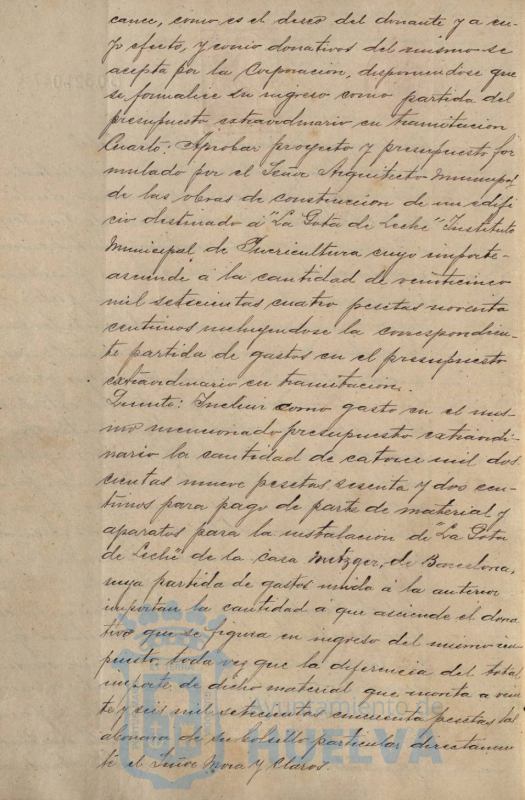 cance, como es el deseo del donante y a cu-
yo efecto, y como donativos del mismo se
acepta por la Corporacion, disponiendose que
se formalice su ingreso como partida del
presupuesto extraordinario en tramitacion
Cuarto: Aprobar proyecto y presupuesto for
mulado por el Señor Arquitecto Municipal
de las obras de construccion de un edifi
cio destinado á "La Gota de Leche" Instituto
Municipal de Puericultura cuyo importe
asciende á la cantidad de veinticinco
mil setecientas cuatro pesetas noventa
centimos incluyendose la correspondien-
te partida de gastos en el presupuesto
extraordinario en tramitacion.
Quinto: Incluir como gasto en el mis-
mo mencionado presupuesto extraordi-
nario la cantidad de catorce mil dos
cientas nueve pesetas sesenta y dos cen-
timos para pago de parte de material y
aparatos para la instalacion de "La Gota
de Leche" de la casa Metzger, de Barcelona,
cuya partida de gastos unida á la anterior
importan la cantidad á que asciende el dona
tivo que se figura en ingreso del mismo
puesto, toda vez que la diferencia del total
importe de dicho material que monta a vein
te y seis mil setecientas cincuenta pesetas las
abonara de su bolsillo particular directamen
te el Señor Mora y Claros.
Ayuntamiento de
HUELVA